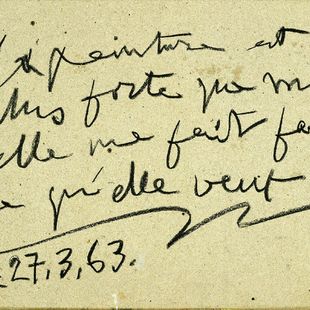 La peinture est
plus forte que m
elle me fait fa
ce qu'elle veut
27.3.63.